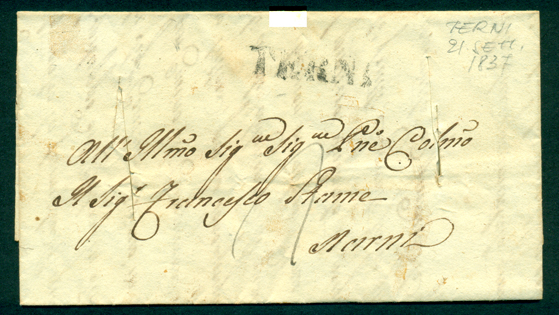 TERNI
TERNI
21 SETT.
1837
All' Illmo Sig.re Sig.re Pne Colmo
Il Sig.r Francesco Stame
Narni